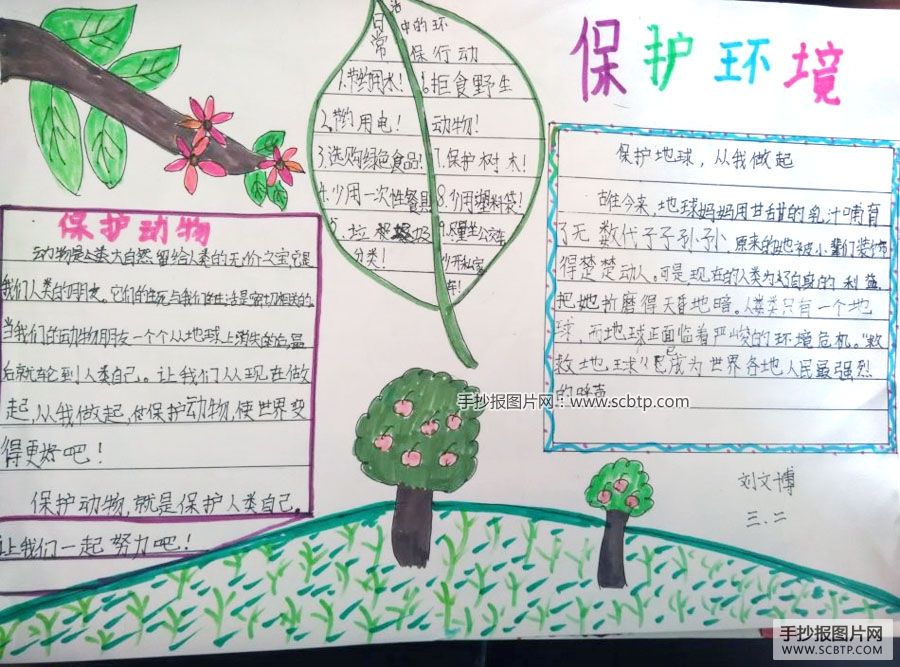 保护环境
日常
活中的环
保行动
1.节约用水!
2.节约用电!
3.选购绿色食品!
4.少用一次性餐具
5.垃圾
分类!
6.拒食野生
动物!
7.保护树木!
8.少用塑料袋!
9.尽量坐公交车
少开私家
车!
保护地球,从我做起
古往今来,地球妈妈用甘甜的乳汁哺育
了无数代子子孙孙 原来的她被小辈们装饰
得楚楚动人。可是,现在的人类为了自身的利益,
把她折磨得天昏地暗。人类只有一个地
球,而地球正面临着严峻的环境危机。“救
救地球”已成为世界各地人民最强烈
的呼声
刘文博
三.二
保护动物
动物是人类大自然留给人类的无价之宝它是
我们人类的朋友。它们的生死与我们的生活是密切相关的。
当我们的动物朋友一个个从地球上消失的,最
后就轮到人类自己。让我们从现在做
起,从我做起,保护动物,使世界变
得更好吧!
保护动物,就是保护人类自己。
让我们一起努力吧!
手抄报图片网:www.scbtp.com
手抄报图片网
WWW.SCBTP.COM